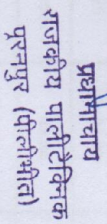 प्रधानाचार्य
राजकीय पालीटेक्निक
पूरनपुर (पीलीभीत)